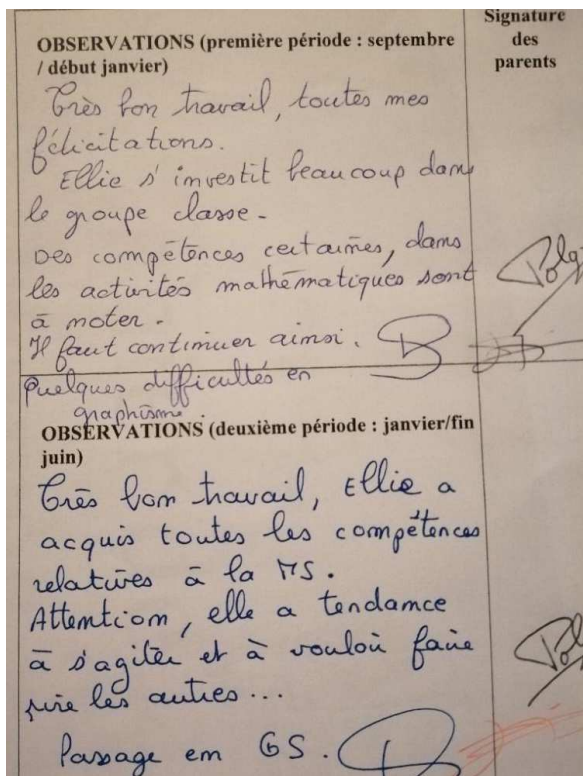 OBSERVATIONS (première période : septembre
/ début janvier)
Signature
des
parents
Très bon travail, toutes mes
félicitations.
Ellie s'investit beaucoup dans
le groupe classe.
Des compétences certaines, dans
les activités mathématiques sont
à noter.
Il faut continuer ainsi.
Quelques difficultés en
graphisme.
OBSERVATIONS (deuxième période : janvier/fin
juin)
Très bon travail, Ellie a
acquis toutes les compétences
relatives à la MS.
Attention, elle a tendance
à s'agiter et à vouloir faire
rire les autres...
Passage en GS.